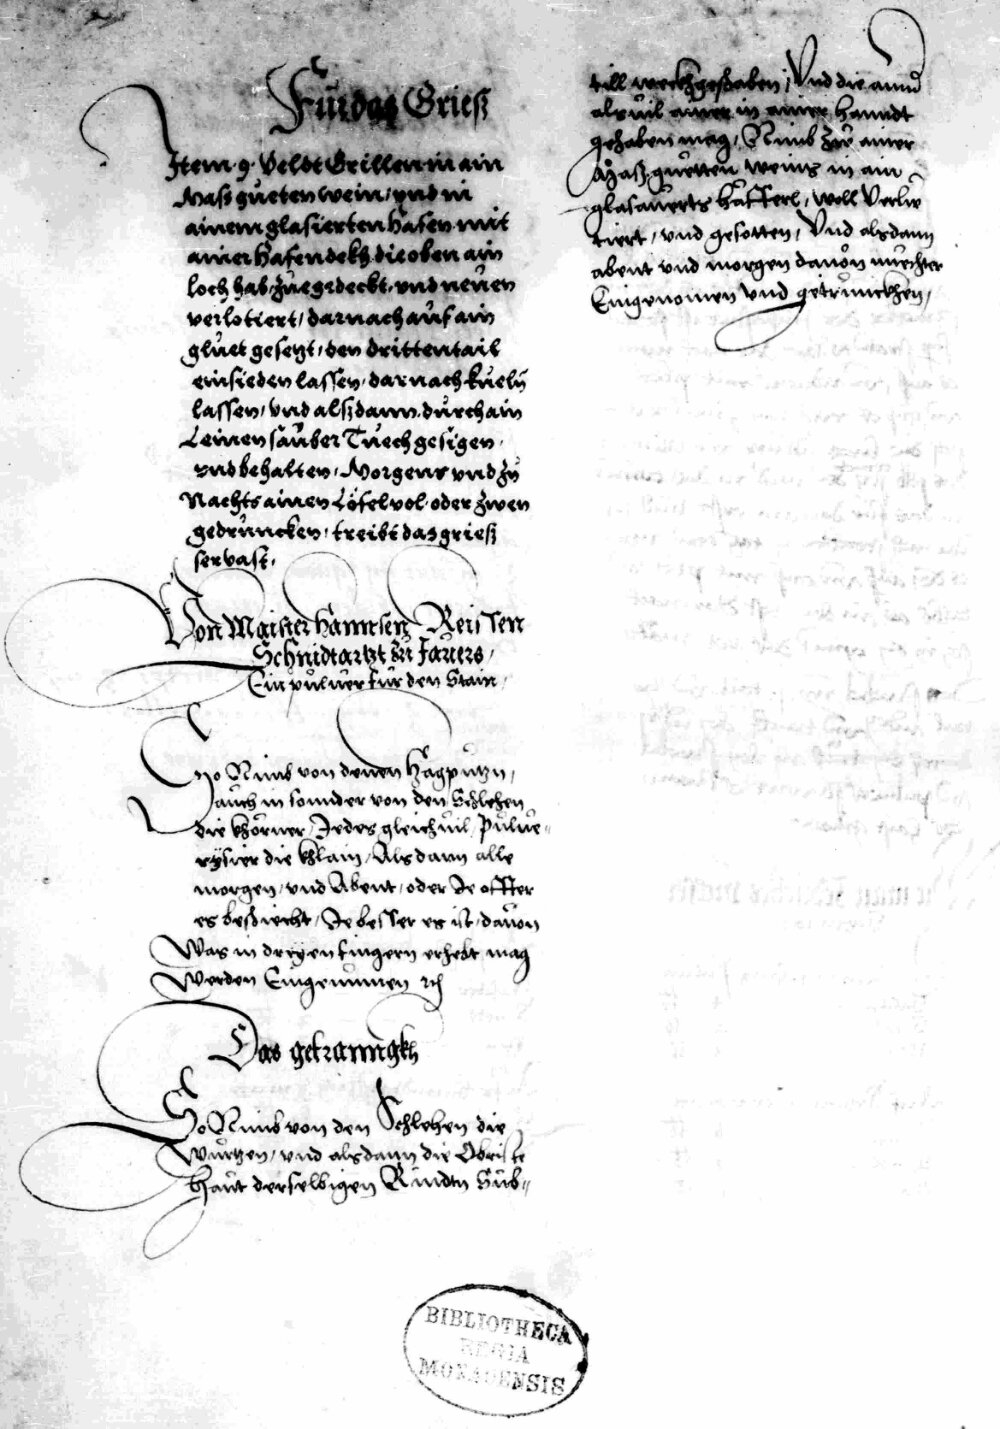 Für das Grieß
Item 9 Veldt Grillen in ain
Mass gueten wein / vnd in
ainem glasierten hafen mit
ainer hafendekh die oben ain
loch hab zuegedeckt vnd
verlotiert / darnach auf ain
gluet gesetzt / den drittentail
einsieden lassen / darnach kuelñ
lassen / vnd alßdann durch ain
Leinen sauber Tuech gesigen
vnd behalten / Morgens vnd zu
Nachts ainen Löfel vol oder zwen
gedruncken / treibt das grieß
ser vasst.
Von Maister Hannsen Reissen
Schnidtartzt zu
Ein puluer für den Stain /
So Nimb von denen Hagputzn /
auch in sonnder von den Schlehen
die khörner / Jedes gleich uil / Pulue=
rysier die khlain / Als dann alle
morgen / vnd Abent / oder Je offter
es beschicht / Je besser es ist / dauon
Was in dreyen fingern erhebt mag
Werden Eingenummen
Das getranngkh
So Nimb von den Schlehen die
Wurtzen / vnd alsdann die Obriste
Haut derselbigen Rindtn Sub=
till werkhgeschaben / Vnd die
als uil ainer in ainer hanndt
gehaben mag / Nimb zu ainer
Maß guetten weins in ain
glasuerts häfferl / woll Verlu
tiert / vnd gesotten / Vnd alsdann
abent vnd morgen dauon nuechter
Eingenomen Vnd getrunckhen /
BIBLIOTHECA
REGIA
MONACENSIS